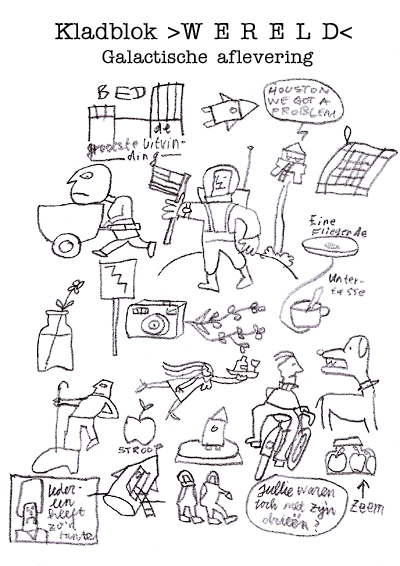 Kladblok >W E R E L D<
Galactische aflevering
BED
de
grootste uitvin-
ding
HOUSTON
WE GOT A
PROBLEM
Eine
Fliegende
Unter-
tasse
STROOP
Ieder-
een
heeft
zo'n
tante
Jullie waren
toch met z'n
drieën?
Zeem